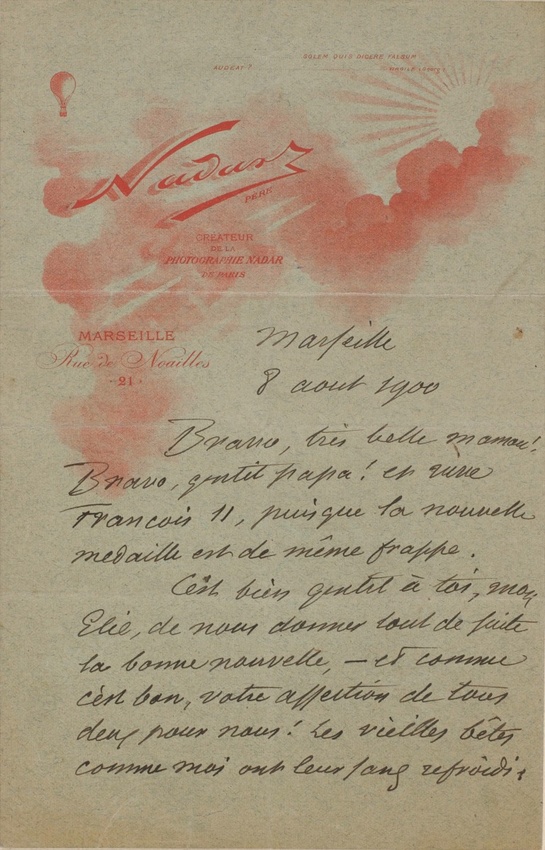 SOLEM QUIS DICERE FALSUM
AUDEAT ?
Nadar
PÈRE
CRÉATEUR
DE LA
PHOTOGRAPHIE NADAR
DE PARIS
MARSEILLE
Rue de Noailles
- 21 -
Marseille
8 aout 1900
Bravo, très belle maman!
Bravo, gentil papa! et vive
François II, puisque la nouvelle
medaille est de même frappe.
C'est bien gentil à toi, mon
Elie, de nous donner tout de suite
la bonne nouvelle, — et comme
c'est bon, votre affection de tous
deux pour nous! Les vieilles bêtes
comme moi ont leur sang refroidi: